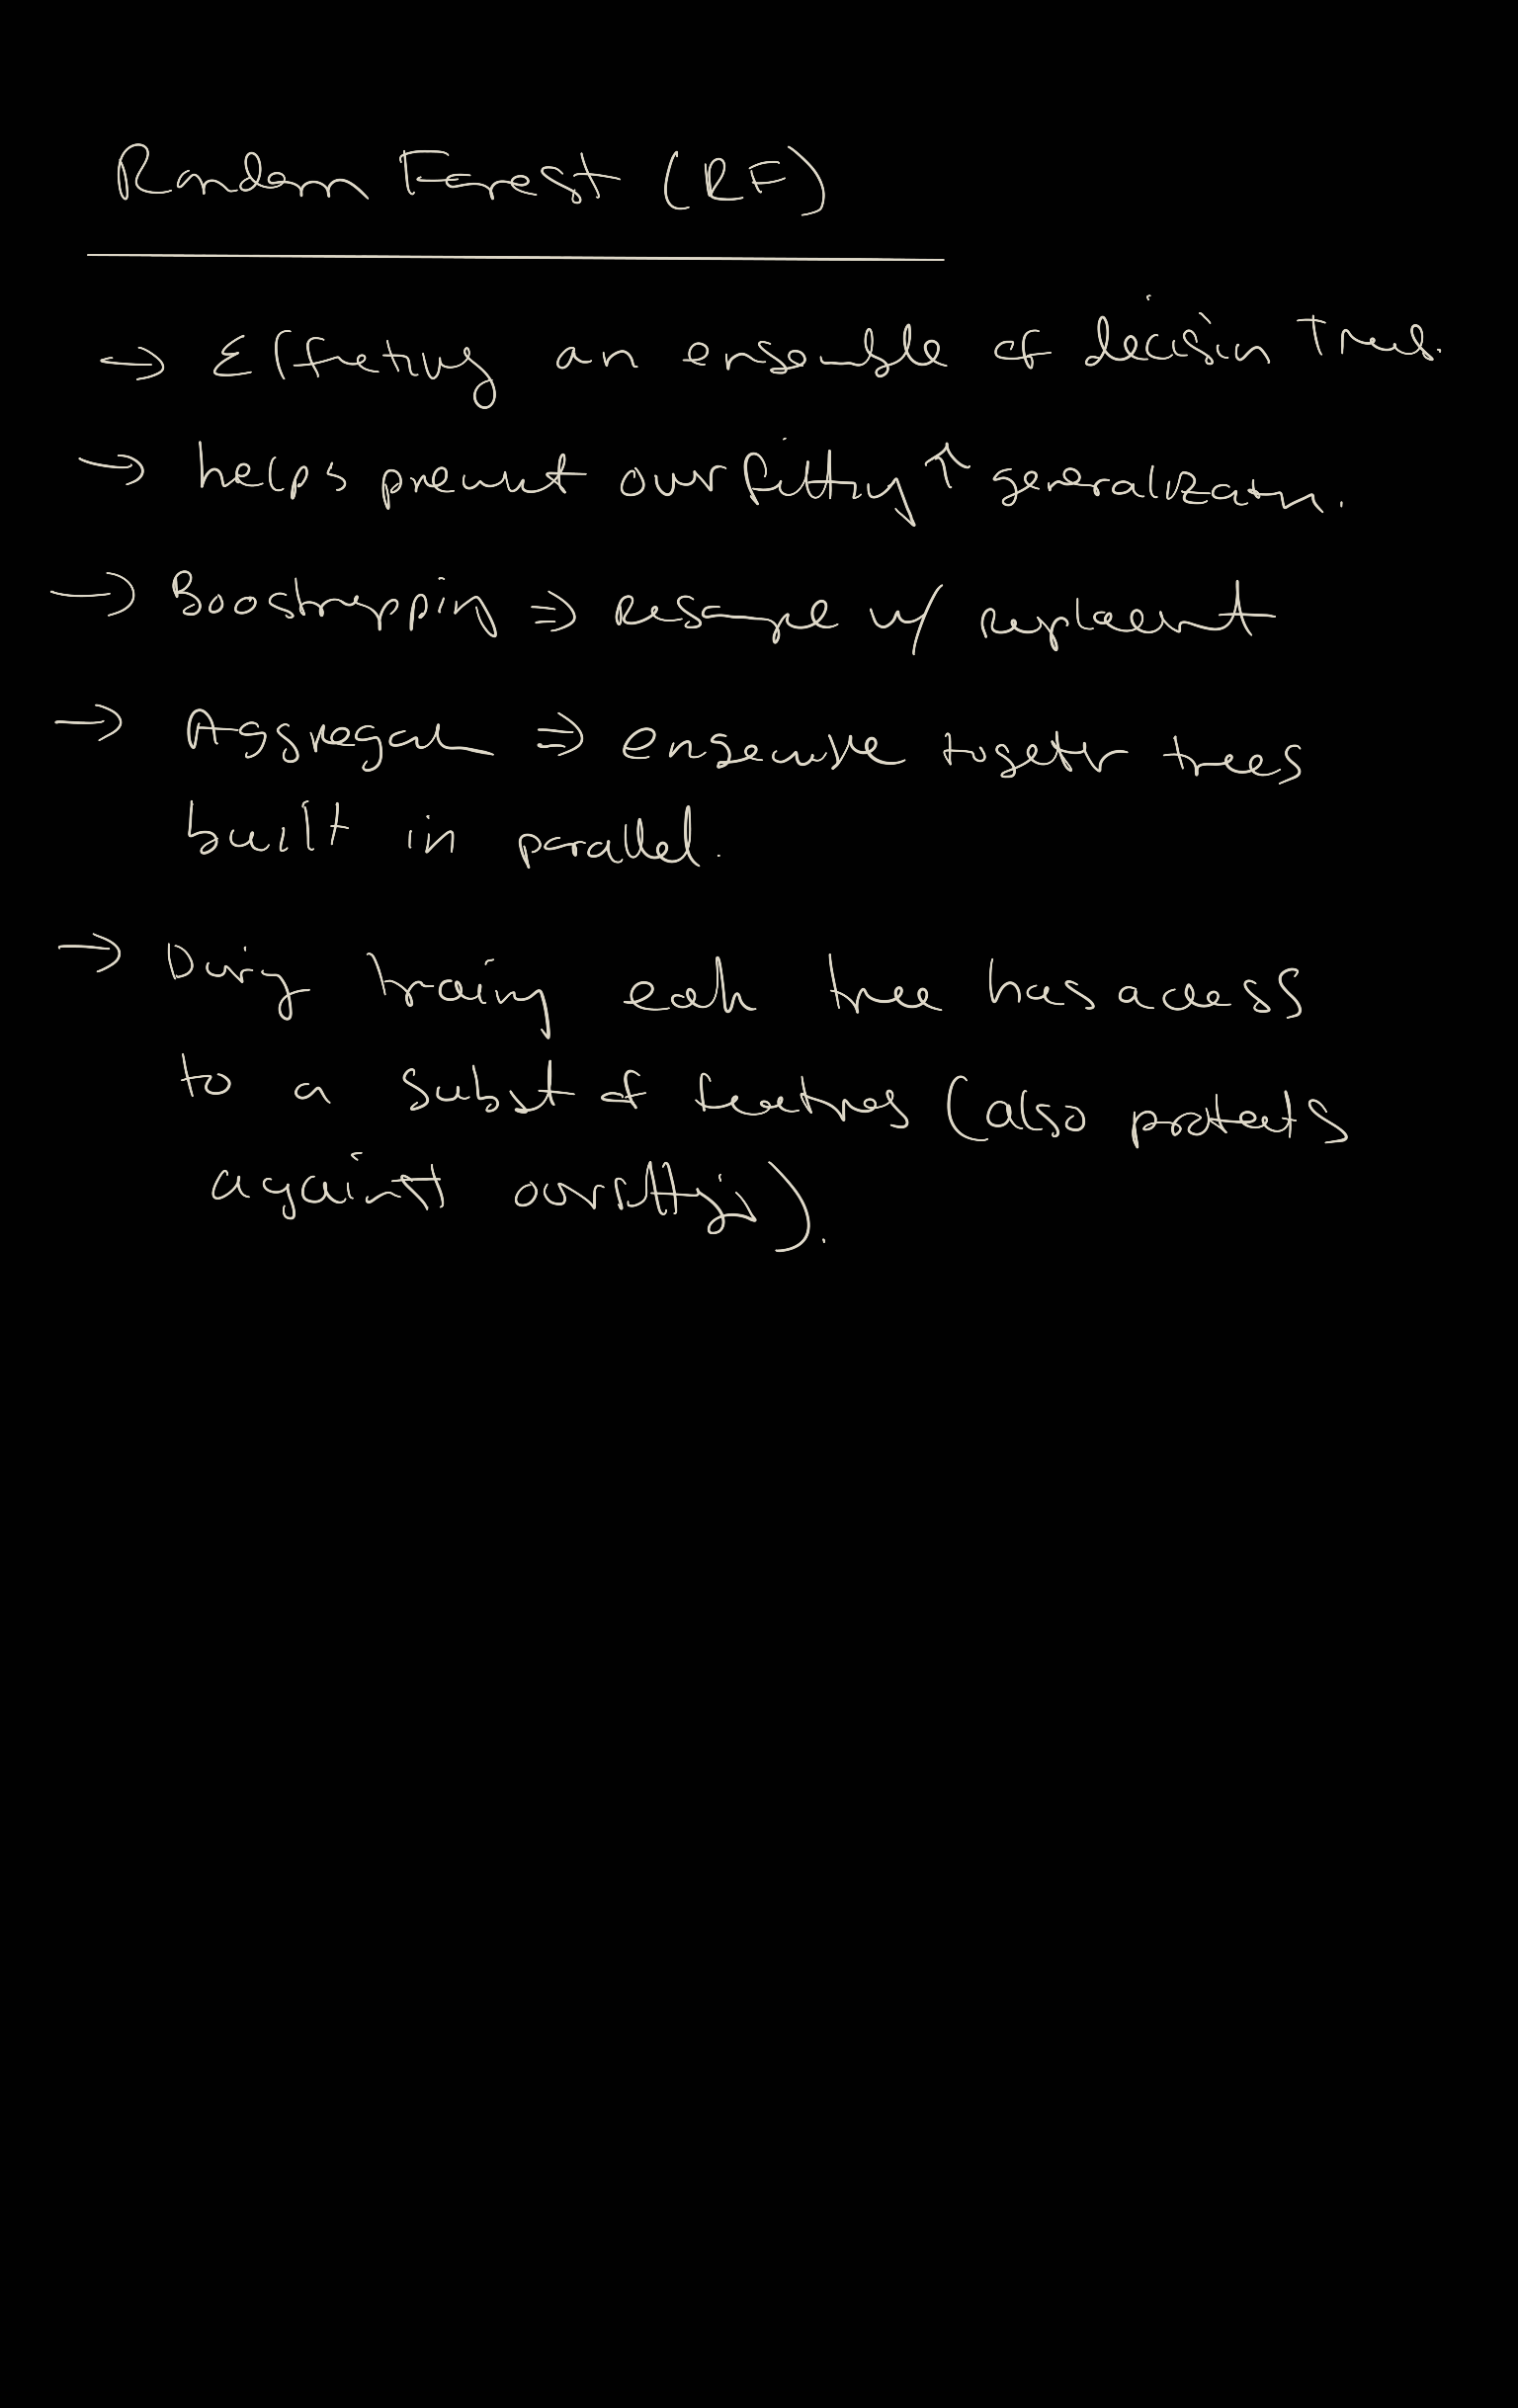 Random Forest (RF)
→ Effectively an ensemble of decision Trees.
→ helps prevent overfitting ↑ generalization.
→ Boostrapping ⇒ Resample w/ replacement
→ Aggregate ⇒ ensemble together trees
built in parallel.
→ During training each tree has access
to a subset of features (also protects
against overfitting).